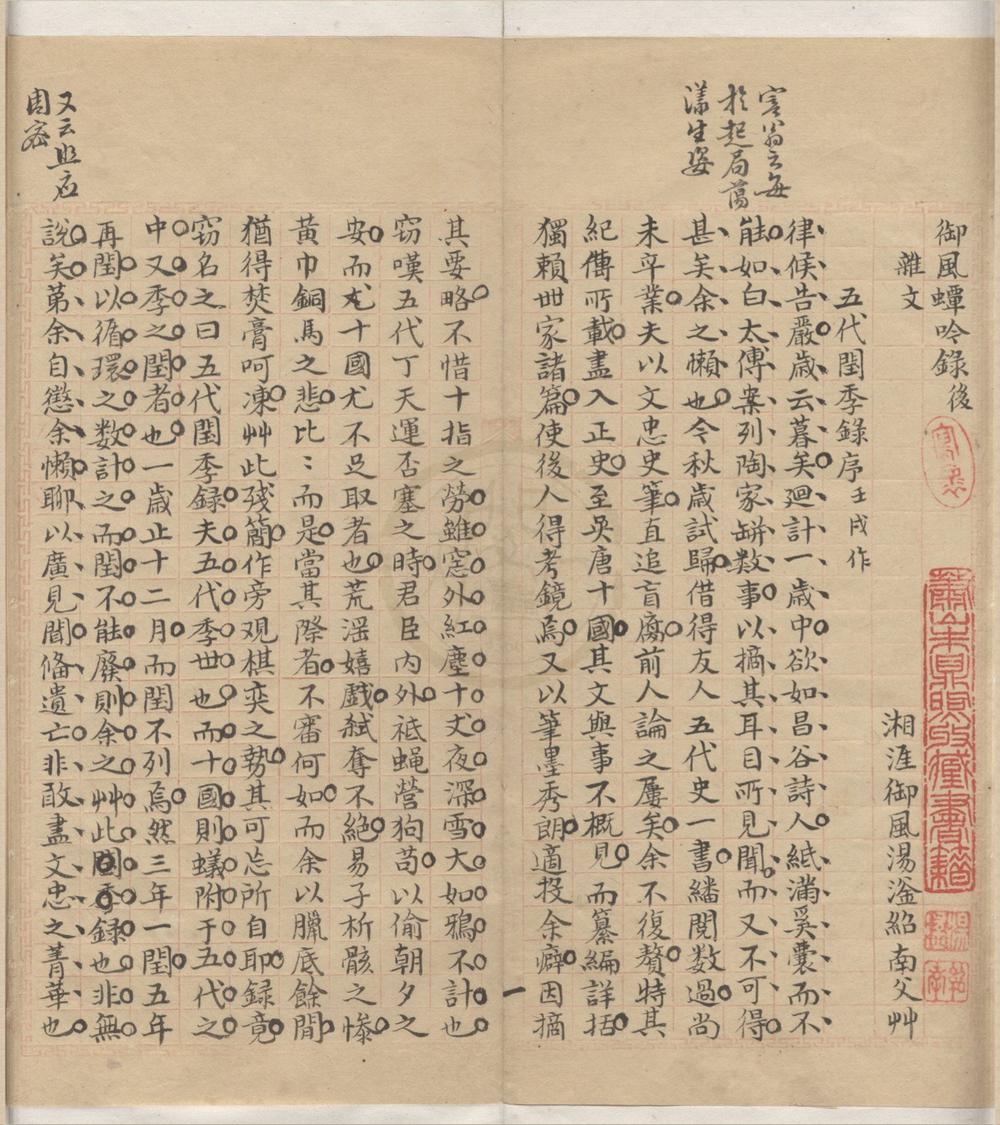 御風蟫吟錄後
雜文
湘漄御風湯滏紹南父艸
五代閏季錄序 壬戌作
律候告嚴歲云暮矣廻計一歲中欲如昌谷詩人紙滿奚囊而不
能如白太傅案列陶家缾数事以摘其耳目所見聞而又不可得
甚矣余之懶也今秋歲試歸借得友人五代史一書繙閱数過尚
未卒業夫以文忠史筆直追盲腐前人論之屢矣余不復贅特其
紀傳所載盡入正史至吳唐十國其文與事不概見而纂編詳括
獨賴世家諸篇使後人得考鏡焉又以筆墨秀朗適投余癖因摘
其要略不惜十指之勞雖窓外紅塵十丈夜深雪大如鴉不計也
窃嘆五代丁天運否塞之時君臣內外祇蝇營狗苟以偷朝夕之
安而尤十國尤不足取者也荒滛嬉戲弒奪不絕易子析骸之慘
黃巾銅馬之悲比比而是當其際者不審何如而余以臘底餘閒
猶得焚膏呵凍艸此殘簡作旁观棋奕之勢其可忘所自耶録竟
窃名之曰五代閏季録夫五代季世也而十國則蟻附于五代之
中又季之閏者也一歲止十二月而閏不列焉然三年一閏五年
再閏以循環之数計之而閏不能廢則余之艸此閏季録也非無
說矣第余自懲余懶聊以廣見聞俻遺亡非敢盡文忠之菁華也
寄翁云每
於起局蕩
漾生姿
又云照应
周密
蕭山朱鼎煦收藏書籍